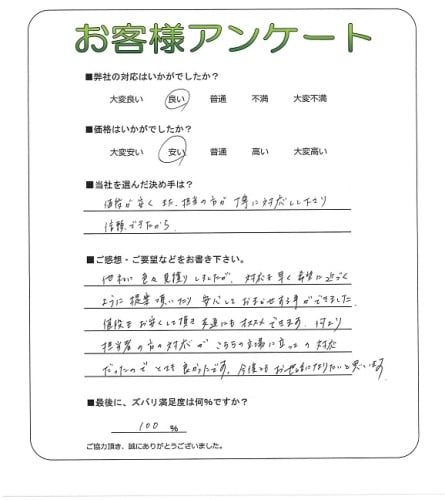 お客様アンケート
■弊社の対応はいかがでしたか？
大変良い 良い 普通 不満 大変不満
■価格はいかがでしたか？
大変安い 安い 普通 高い 大変高い
■当社を選んだ決め手は？
値段が安く また、担当の方が 丁寧に対応して下さり
信頼できたから。
■ご感想・ご要望などをお書き下さい。
他社に 色々 見積りしましたが、対応も早く 希望に近づく
ように 提案 頂いたり 安心して おまかせする事ができました。
値段も お安くして頂き 友達にも オススメできます。何より
担当者の方の対応が こちらの立場に立っての対応
だったので とても良かったです。今後とも お世話になりたいと思います。
■最後に、ズバリ満足度は何%ですか？
100 %
ご協力頂き、誠にありがとうございました。